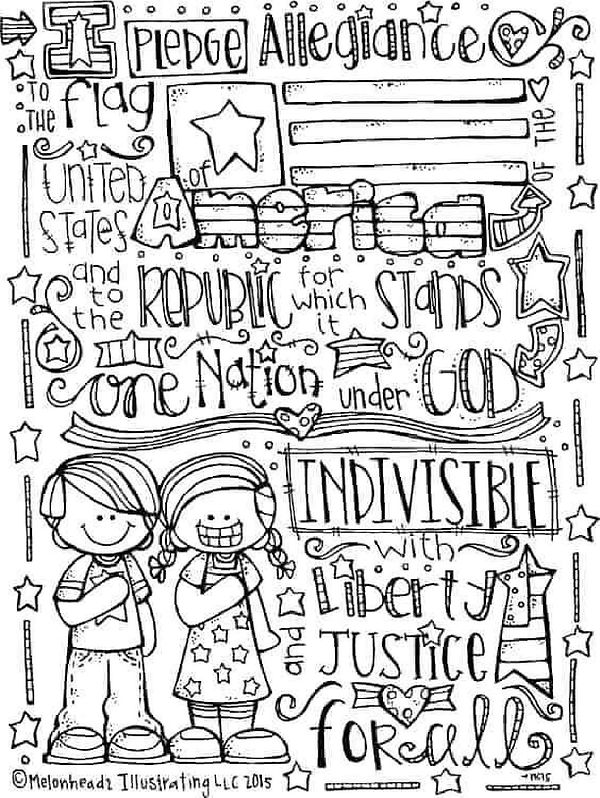 I PLEDGE Allegiance
TO THE flag
of
UNITED STATES
OF THE
America
and to the REPUBLIC for which it STANDS
one Nation under GOD
INDIVISIBLE
with
Liberty
and
JUSTICE
for all
©Melonheadz Illustrating LLC 2015